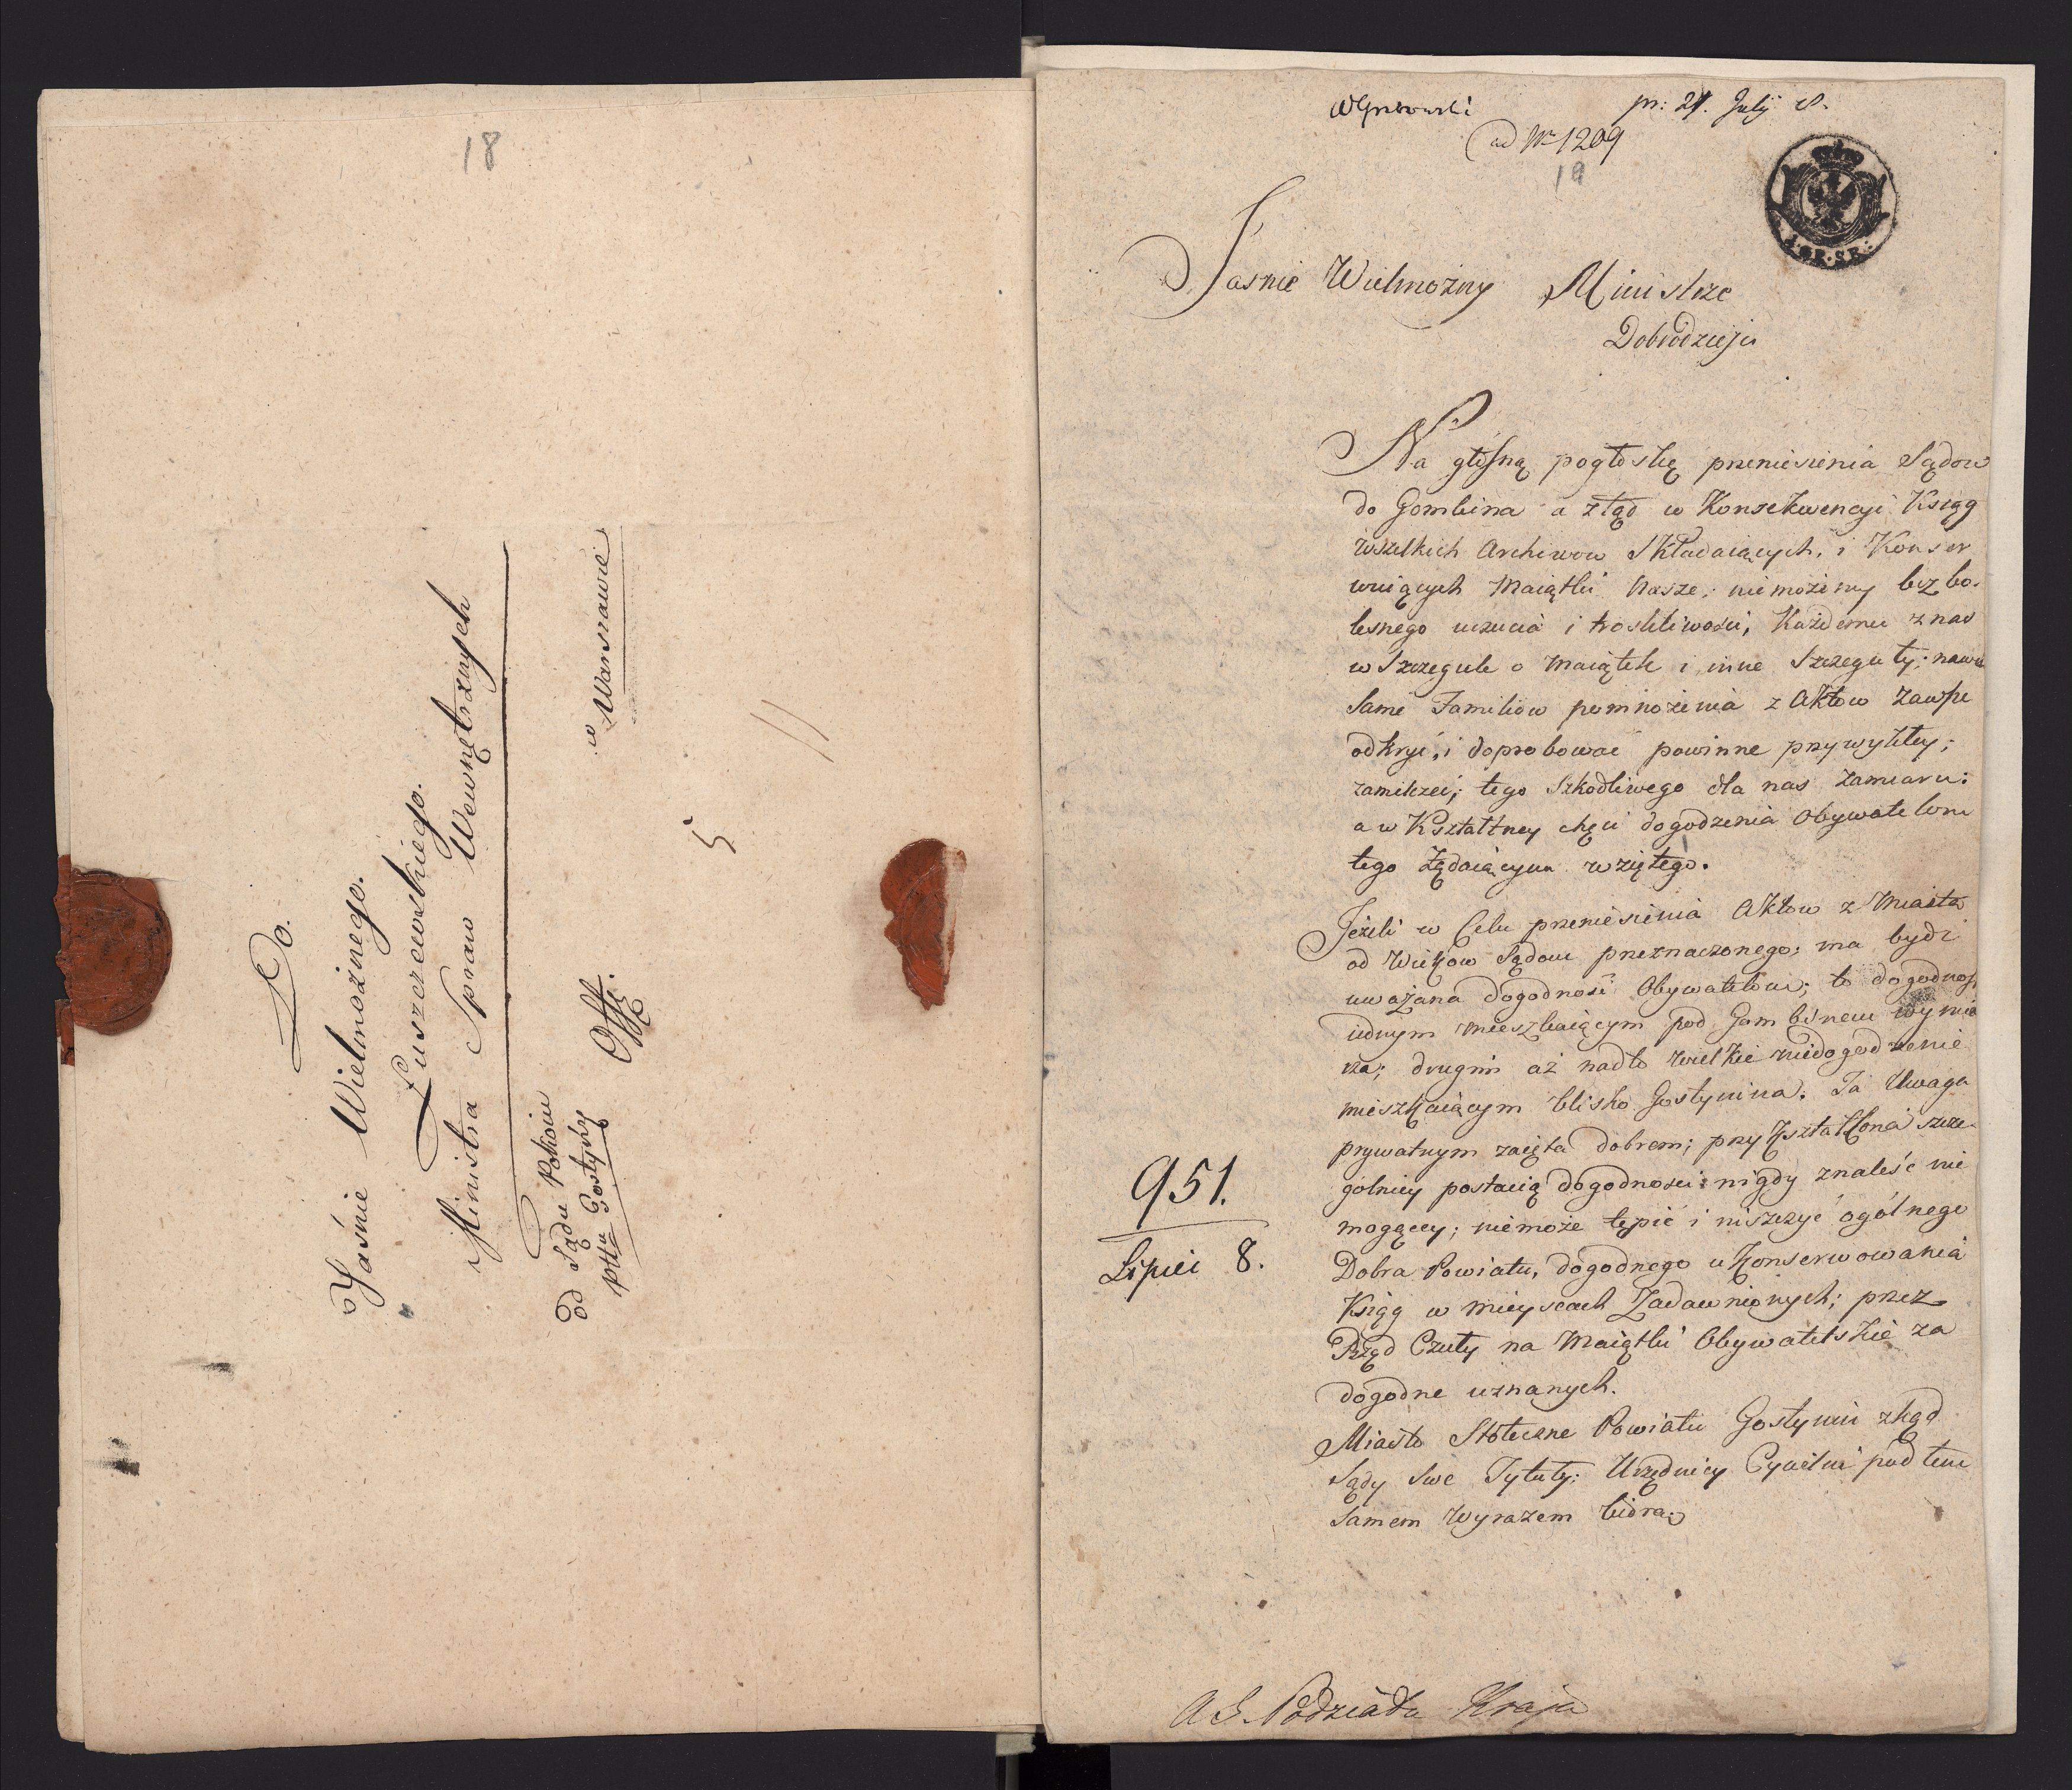 18
Do.
Jaśnie Wielmożnego.
Łuszczewskiego.
Ministra Spraw Wewnętrznych
w Warszawie
od Sądu Pokoiu
pttu Gostyńs
Offi.
5
pr: 21. July
ad Nr 1209
19
Jasnie Wielmożny Ministrze
Dobrodzieju
Na głosną pogłoskę przeniesienia Sądow
do Gombina a ztąd w Konsekwencyi Ksiąg
wszelkich Archiwow Składaiących, i Konser
wuiących Maiątki Nasze; niemożemy bez bo-
lesnego uczucia i troskliwości, Każdemu z nas
w Szczegule o Maiątek i inne Szczeguły; nawe
Same Familiow pomnożenia z Aktow zawsze
odkryć, i doprobować powinne przywykłey;
zamilczeć; tego Szkodliwego dla nas zamiaru:
a w Kształtney chęci dogodzenia Obywatelom
tego Żądaiącym wziętego.
Jeżeli w Celu przeniesienia Aktow z Miasta
od Wiekow Sądom przeznaczonego; ma bydź
uważana dogodność Obywatelom; to dogodność
iednym mieszkaiącym pod Gombinem wymie
rza; drugim aż nadto wielkie niedogodzenie
mieszkaiącym blisko Gostynina. Ta Uwaga
prywatnym zaięta dobrem; przykształtlona szcze-
golniey postacią dogodności nigdy znaleść nie
mogącey; niemoże tępić i niszczyć ogólnego
Dobra Powiatu, dogodnego ukonserwowania
Ksiąg w mieyscach Zadawnionych; przez
Rząd Czuły na Maiątki Obywatelskie za
dogodne uznanych.
Miasto Stołeczne Powiatu Gostynin zkąd
Sądy Swe Tytuły: Urzędnicy Cywilni pod tem
Samem Wyrazem biorą;
951.
Lipiec 8.
A S. Podziału Kraju